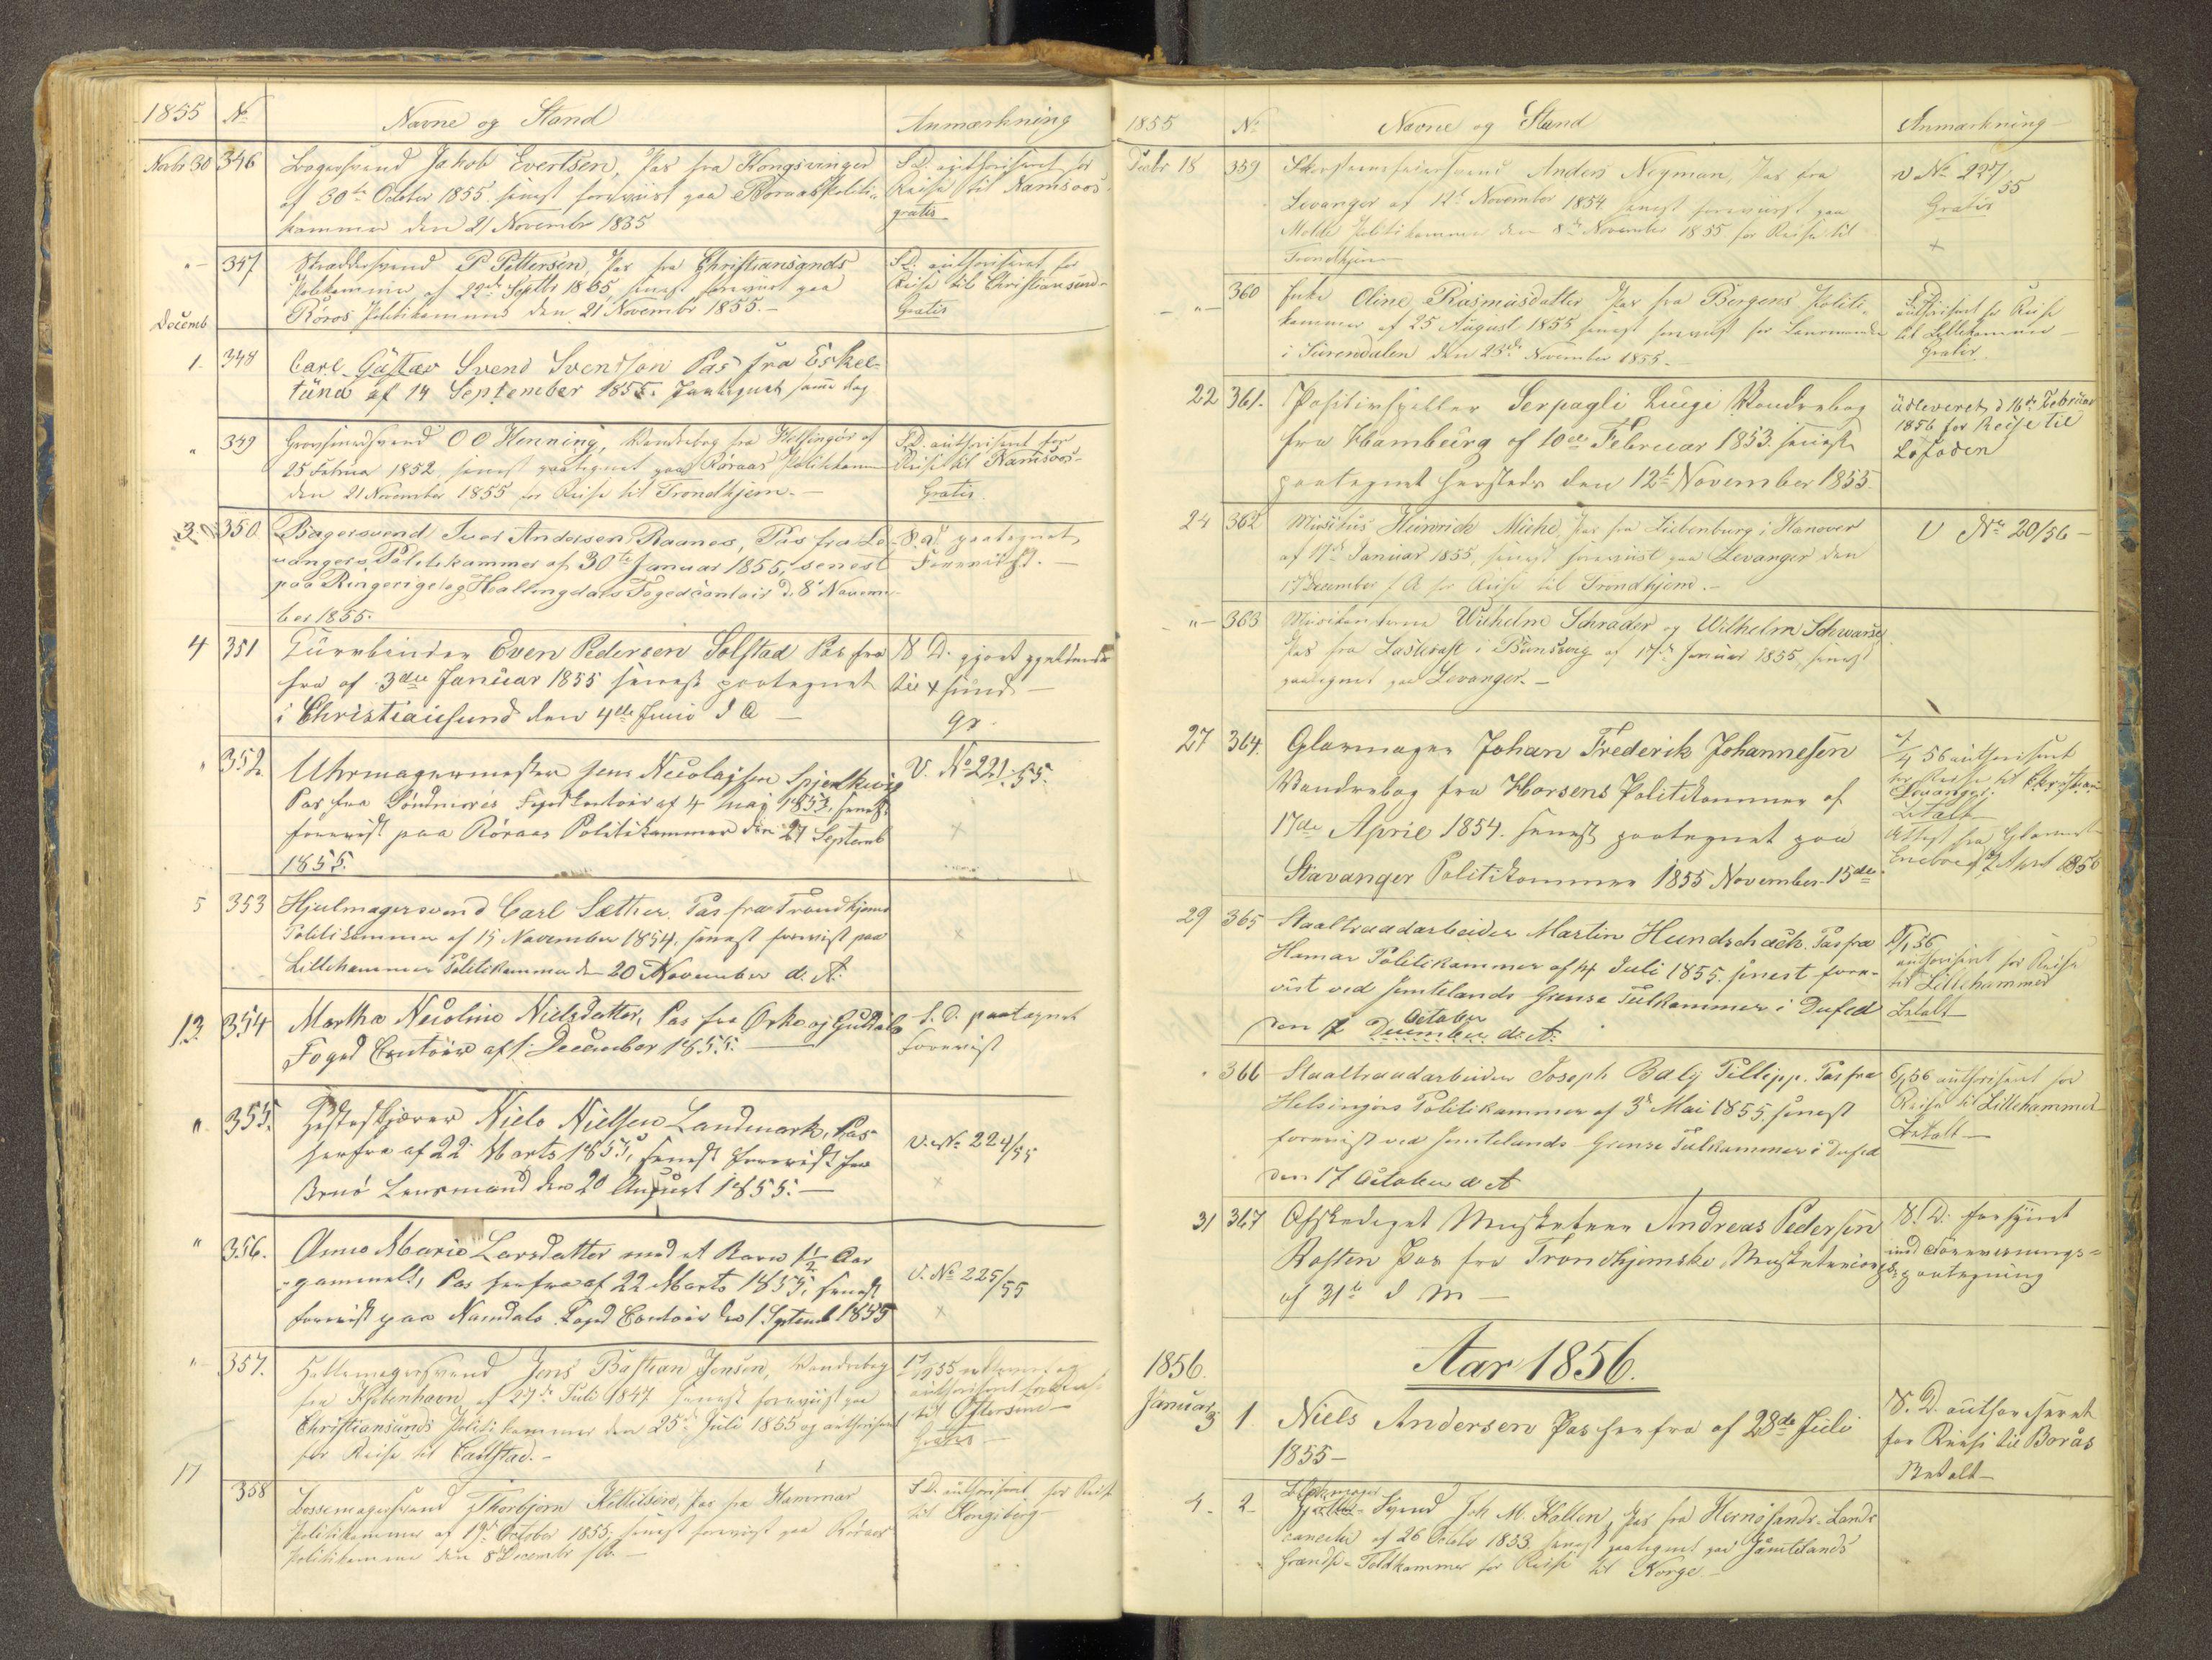 1855 No Navne og Stand Anmærkning
Novbr 30 346 Bagersvend Jakob Evertsen, Pas fra Kongsvinger
af 30te October 1855. senest foreviist paa Roraas Politi-
kammer den 21 November 1855
S.D. authoriseret for
Reise til Namsoos-
gratis
"- 347 Skræddersvend P. Pettersen, Pas fra Christiansands
Politikammer af 22de Septbr 1855 senest foreviist paa
Röros Politikammer den 21 Novembr 1855.-
S.D. authoriseret for
Reise til Christiansund-
Gratis
Decemb
1. 348 Carl Gustav Svend Svendson Pas fra Eskel-
tuna af 14 September 1855. Paategnet samme dag
" 349 Grovsmedsvend O O Henning, Vandrebog fra Helsingör af
25 Februar 1852, senest paategnet paa Röraas Politikammer
den 21 November 1855 for Reise til Trondhjem.-
S.D. authoriseret for
Reise til Namsoos-
Gratis.
3. 350. Bagersvend Iver Andersen Raanes, Pas fra Le-
vangers Politikammer af 30te Januar 1855, senest
paa Ringerige og Hallingdals Fogedcontoir d. 8de Novem-
ber 1855.
S.D. paategnet
Foreviist.-
4 351 Even Pedersen Solstad Pas fra
fra af 3die Januar 1855 senest paategnet
i Christiansund den 4de Juni d A -
S D. gjort gjeldende
til xsund -
gr.
" 352. Uhrmagermester Jens Nicolaysen Spjelkevig
Pas fra Söndmöres Fogedkontoir af 4 Maj 1853, senest
forevist paa Röraas Politikammer den 27 Septemb
1855.
V. No 221-55.
x
5 353 Hjulmagersvend Carl Sæther. Pas fra Trondhjems
Politikammer af 15 November 1854, senest forevist paa
Lillehammer Politikammer den 20 November d. A:
x
13 354 Martha Nicoline Nielsdatter, Pas fra Orke og Guldals
Foged Contoir af 1. December 1855.
S.D. paategnet
forevist
" 355. Niels Nielsen Landmark, Pas
herfra af 22 Marts 1855, senest forevist for
Brnö Lensmand den 20 August 1855.-
V. No 224/55
x
" 356. Anne Marie Larsdatter med et Barn 1 1/2 Aar
gammelt, Pas herfra af 22 Marts 1855, senest
forevist paa Namdals Foged Contoir den 1 Septemb 1855
V. No 225/55
x
" 357. Hattemagersvend Jens Bastian Jensen, Vandrebog
fra Kjøbenhavn af 27de Juli 1847 senest foreviist paa
Christiansunds Politikammer den 25de Juli 1855 og authoriseret
for Reise til Carlstad.-
authoriseret for Reise
til Østersund-
Gratis-
17 358 Bossemagersvend Thorbjorn Kettilsen, Pas fra Hammar
Politikammer af 19de October 1855, senest foreviist paa Röraas
Politikammer den 8de Decembr s.A.-
S.D. authoriseret for Reise
til Kongsberg-
1855 No Navne og Stand Anmærkning
Decbr 18 359 Skorsteensfeiersvend Anders Nyman, Pas fra
Levanger af 12te November 1854 senest foreviist paa
Molde Politikammer den 8de November 1855 for Reise til
Trondhjem
v No 227/55
Gratis
x
-"- 360 Enke Oline Rasmusdatter Pas fra Bergens Politi-
kammer af 25 August 1855 senest foreviist for Lensmanden
i Surendalen den 23de November 1855.-
S.D.
authoriseret for Reise
til Lillehammer-
Gratis
22 361. Positivspiller Serpagli Luigi Vandrebog
fra Hamburg af 10de Februar 1853. senest
paategnet hersteds den 12te November 1855
udleveret d 16de Februar
1856 for Reise til
Lofoden
24 362 Musikus Heinrich Miche, Pas fra Liebenburg i Hanover
af 17de Januar 1855, senest foreviist paa Levanger den
17 December s. A for Reise til Trondhjem.-
V No 20/56-
-"- 363 Musikanterne Wilhelm Schrader og Wilhelm Schwarse
Pas fra af 17de Januar 1855, senest
paategnet paa Levanger.-
27 364. Glarmager Johan Frederik Johannesen
Vandrebog fra Horsens Politikammer af
17de April 1854. senest paategnet paa
Stavanger Politikammer 1855 November 15de.
/4 56 authoriseret
for Reise til Christian
Levanger.
Betalt
Attest fra Glarmest
af 2 April 1856
29 365 Staaltraadarbeider Martin Hundschach. Pas fra
Hamar Politikammer af 4 Juli 1855. senest fore-
vist ved Jemtelands Grense Tulkammer i Dufed
October
den 17 December d. A:
6/1 56
authoriseret for Reise
til Lillehammer
Betalt
" 366 Staaltraadarbeider Joseph Baly Pillipp. Pas fra
Helsingörs Politikammer af 3de Mai 1855. senest
forevist ved Jemtelands Grense Tulkammer i Dufed
den 17 October d. A
6/1 56 authoriseret for
Reise til Lillehammer
Betalt-
31 367 Afskediget Musketeer Andreas Pedersen
Rosten Pas fra Trondhjemske Musketeercorps
af 31te d M-
S.D. forsynet
med Forevisnings-
paategning
Aar 1856.
1856.
Januar
3 1. Niels Andersen Pas herfra af 28de Juli
1855-
S.D. authoriseret
for Reise til Borås
Betalt-
4. 2 Svend Joh. M. Kallen, Pas fra Hernösands Lands
cancelie af 26 Octobr 1853 senest paategnet paa Jämtelands
Grændse-Toldkammer for Reise til Norge.-